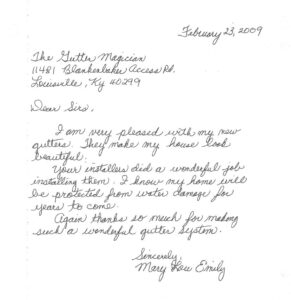 February 23, 2009
The Gutter Magician
11481 Blankenbaker Access Rd.
Louisville, Ky 40299
Dear Sirs,
I am very pleased with my new
gutters. They make my house look
beautiful.
Your installers did a wonderful job
installing them. I know my home will
be protected from water damage for
years to come.
Again thanks so much for making
such a wonderful gutter system.
Sincerely,
Mary Lou Emily